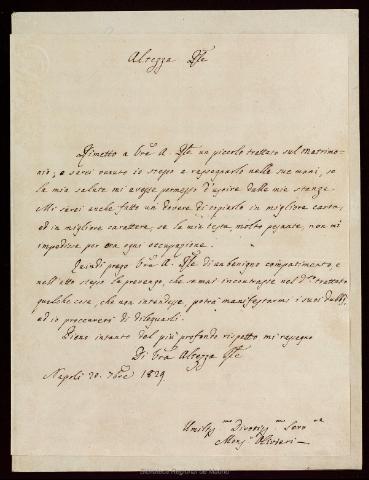 Altezza Rle
Rimetto a Vra A. Rle un piccolo trattato sul Matrimo-
nio, e sarei venuto io stesso a rassegnarlo nelle sue mani, se
la mia salute mi avesse permesso d'uscire dalle mie stanze.
Mi sarei anche fatto un dovere di copiarlo in migliore carta,
ed in migliore carattere, se la mia testa, molto pesante, non mi
impedisse per ora ogni occupazione.
Quindi prego Vra A. Rle di un benigno compatimento, e
nell'atto stesso la prevengo, che se mai incontrasse nel do trattato
qualche cosa, che non intendesse, potrà manifestarmi i suoi dubbj,
ed io proccurerò di dileguarli.
Pieno intanto del più profondo rispetto mi rassegno
Di Vra Altezza Rle
Napoli 20. 7bre 1829
Umiliss mo Divotiss mo Serv re
Mons. Olivieri
Biblioteca Regional de Madrid